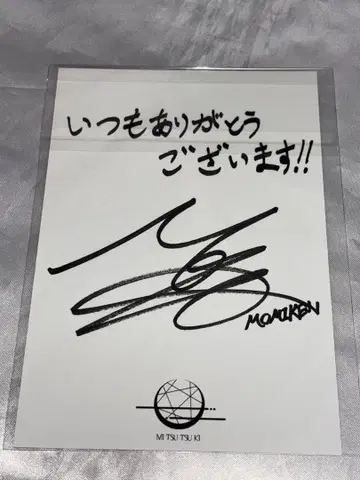 いつもありがとう
ございます!!
MOMIKEN
MI TSU TSU KI